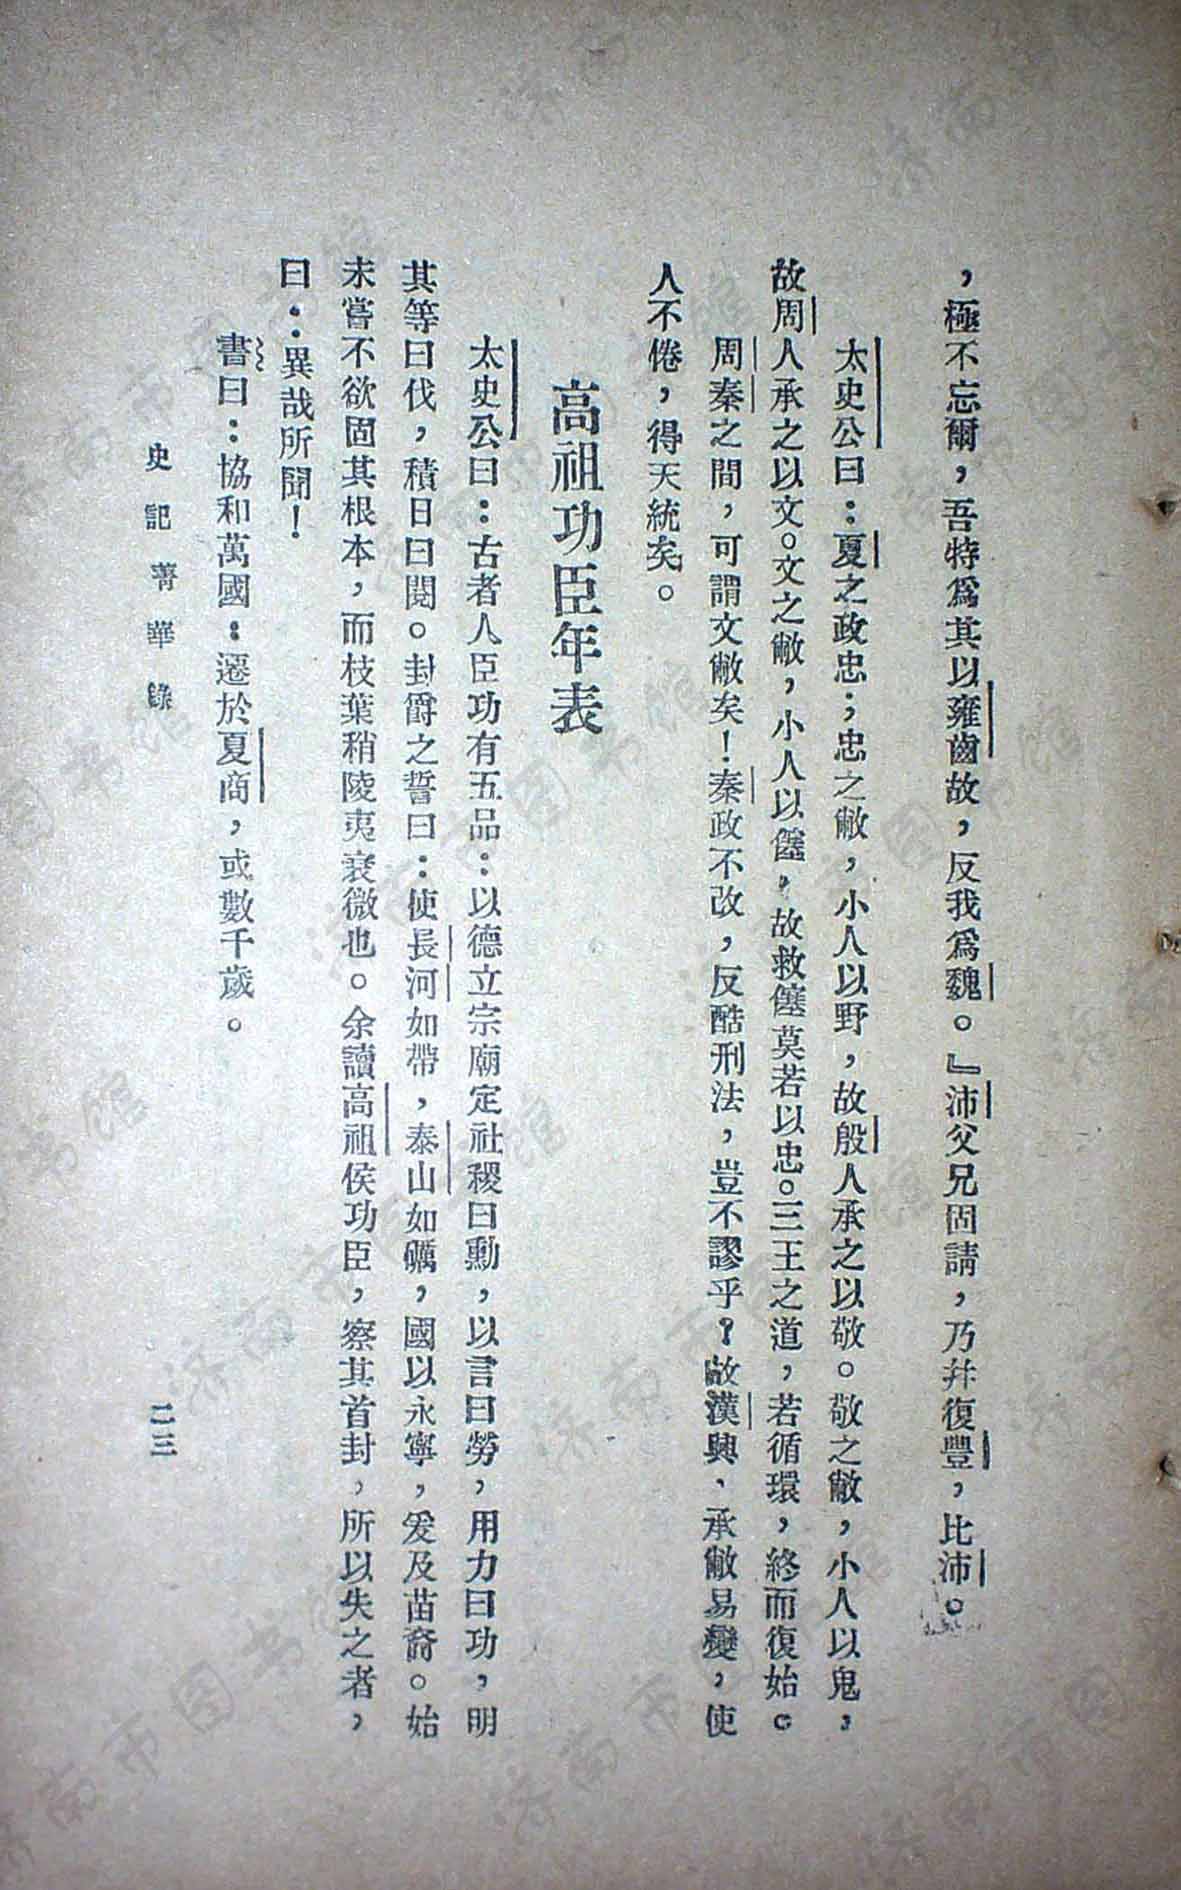 ，極不忘爾，吾特爲其以雍齒故，反我爲魏。』沛父兄固請，乃幷復豐，比沛。
太史公曰：夏之政忠；忠之敝，小人以野，故殷人承之以敬。敬之敝，小人以鬼，
故周人承之以文。文之敝，小人以僿，故救僿莫若以忠。三王之道，若循環，終而復始。
周秦之間，可謂文敝矣！秦政不改，反酷刑法，豈不謬乎？故漢興，承敝易變，使
人不倦，得天統矣。
高祖功臣年表
太史公曰：古者人臣功有五品：以德立宗廟定社稷曰勳，以言曰勞，用力曰功，明
其等曰伐，積日曰閱。封爵之誓曰：使長河如帶，泰山如礪，國以永寧，爰及苗裔。始
未嘗不欲固其根本，而枝葉稍陵夷衰微也。余讀高祖侯功臣，察其首封，所以失之者，
曰：異哉所聞！
書曰：協和萬國：遷於夏商，或數千歲。
史記菁華錄
二三
济南市图书馆